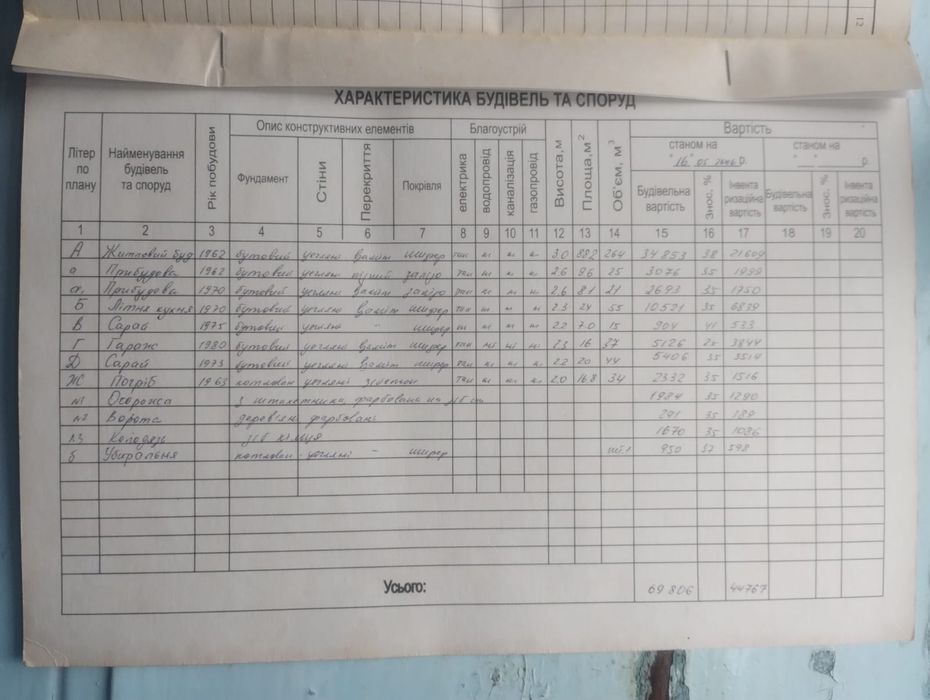 12
ХАРАКТЕРИСТИКА БУДІВЕЛЬ ТА СПОРУД
Літер по плану
Найменування будівель та споруд
Рік побудови
Опис конструктивних елементів
Фундамент
Стіни
Перекриття
Покрівля
Благоустрій
електрика
водопровід
каналізація
газопровід
Висота,м
Площа,м²
Об'єм, м³
Вартість
станом на
"16" 05 2006 р.
станом на
"___" р.
Будівельна вартість
Знос, %
Інвентаризаційна вартість
Будівельна вартість
Знос, %
Інвентаризаційна вартість
1 2 3 4 5 6 7 8 9 10 11 12 13 14 15 16 17 18 19 20
А Житловий буд 1962 бутовий цегляні шифер так ні ні ні 3.0 264 34853 38 21609
а Прибудова 1962 бутовий цегляні так ні ні ні 2.6 9.6 25 3076 35 1999
а₁ Прибудова 1970 бутовий цегляні так ні ні ні 2.6 8.1 21 2693 35 1750
Б Літня кухня 1970 бутовий цегляні шифер так ні ні ні 2.3 24 55 10521 35 6839
В Сарай 1975 бутовий цегляні - шифер ні ні ні ні 2.2 7.0 15 904 41 533
Г Гараж 1980 бутовий цегляні шифер так ні ні ні 2.3 16 37 5126 25 3844
Д Сарай 1973 бутовий цегляні шифер так ні ні ні 2.2 20 44 5406 35 3514
Ж Погріб 1963 котлован цегляні так ні ні ні 2.0 16.8 34 2332 35 1516
№1 Огорожа з штахетника, фарбована 1984 35 1290
№2 Ворота дерев'яні фарбовані 291 35 189
№3 Колодязь з/б кільця 1670 35 1086
б Убиральня котлован цегляні - шифер 950 37 598
Усього: 69806 44767